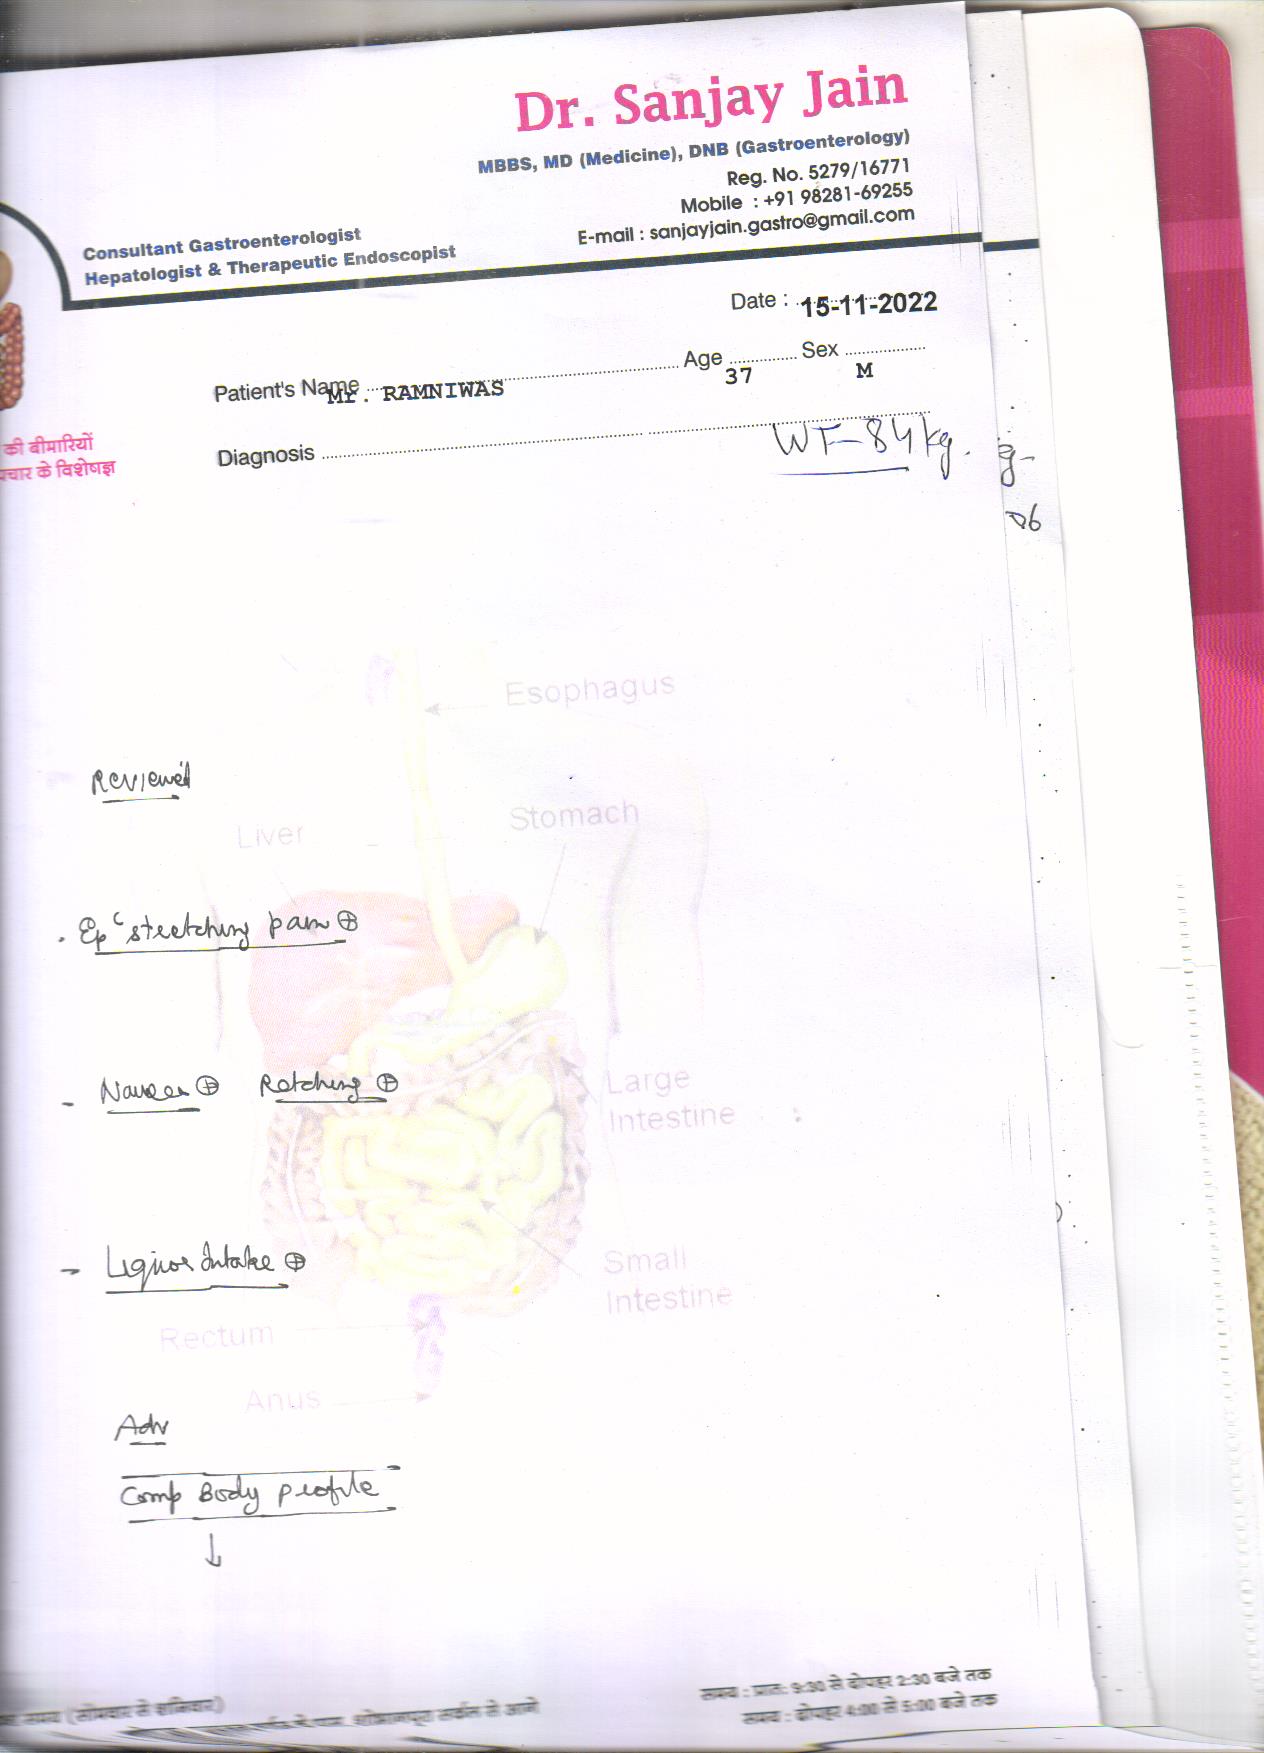 Dr. Sanjay Jain
MBBS, MD (Medicine), DNB (Gastroenterology)
Reg. No. 5279/16771
Mobile : +91 98281-69255
E-mail : sanjayjain.gastro@gmail.com
Consultant Gastroenterologist
Hepatologist & Therapeutic Endoscopist
Date : 15-11-2022
Patient's Name Mr. RAMNIWAS Age 37 Sex M
की बीमारियों
चार के विशेषज्ञ
Diagnosis
WT- 84 kg.
g-
06
Esophagus
Reviewed
Liver
Stomach
. Ep c stretching pain ⊕
Large
Intestine
- Nausea ⊕ Retching ⊕
Small
Intestine
- Liquor Intake ⊕
Rectum
Anus
Adv
Comp Body profile
↓
समय : प्रातः 9:30 से दोपहर 2:30 बजे तक
समय : दोपहर 4:00 से 5:00 बजे तक
समय (सोमवार से शनिवार)
सर्कल से आगे